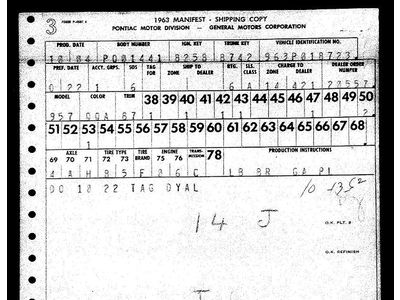 3
FORM P-4087 C
1963 MANIFEST - SHIPPING COPY
PONTIAC MOTOR DIVISION — GENERAL MOTORS CORPORATION
PROD. DATE BODY NUMBER IGN. KEY TRUNK KEY VEHICLE IDENTIFICATION NO.
10104 P001441 8258 8742 963P018723
PREF. DATE ACCT. GRPS. SDS TAG FOR SHIP TO ZONE DEALER RTG. SLS. CLASS CHARGE TO ZONE DEALER DEALER ORDER NUMBER
0 22 1 6 6 A 14 421 22557
MODEL COLOR TRIM 38 39 40 41 42 43 44 45 46 47 48 49 50
957 CQA 87 1 2
51 52 53 54 55 56 57 58 59 60 61 62 63 64 65 66 67 68
1
69 AXLE 70 71 TIRE TYPE 72 73 TIRE BRAND ENGINE 75 76 TRANS-MISSION 78 PRODUCTION INSTRUCTIONS
4 A H B 5 F 0 6 C LB BR GA PI
DO 10 22 TAG DYAL
14 J
O.K. PLT. 8
O.K. REFINISH